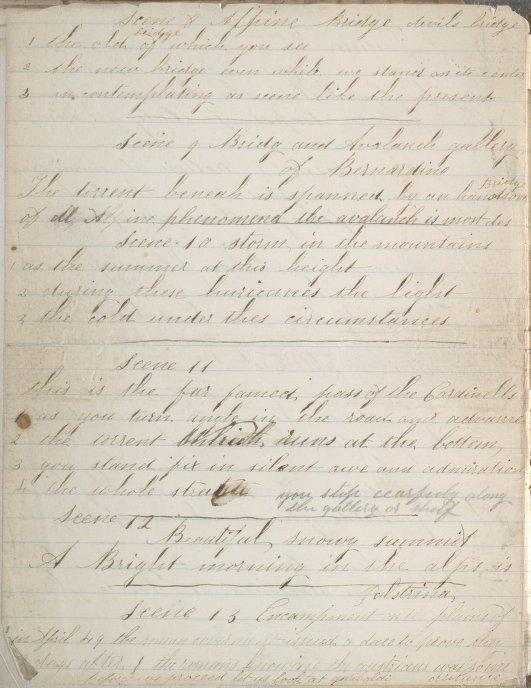 Scene 8 Alpine Bridge devils bridge
1 the old bridge of which you see
2 the new bridge even while we stand on its center
3 in contemplating as scene like the present
Scene 9 Bridg and Avalanch gallery
of Bernardine
The torrent beneah is spanned by an handsom Bridg
of all Alpine phenomena the avalanch is most des
Scene 10 storm in the mountains
1 as the summer at this height
2 during these hurricanes the light
3 the cold under thes circumstances
Scene 11
this is the far famed pass of the Cardinells
as you turn angle in the road and advance
2 the torrent which runs at the bottom,
3 you stand fix in silent awe and admiration
4 the whole you step cearfuly along
the gallery or shelf
Scene 12
Beautiful snowy summit
A Bright morning in the alps is
Scene 13 Encampment on plains of
in April 49 the roman goverment issued a
days after the romans
before we proceed let us look at